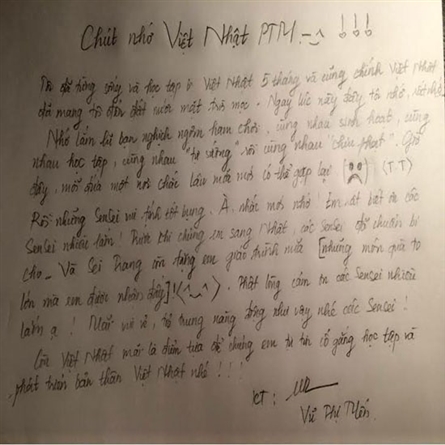 Chút nhớ Việt Nhật PTM. ^-^ !!!
Tôi đã từng sống và học tập ở Việt Nhật 5 tháng và cũng chính Việt Nhật
đã mang tôi đến đất nước mặt trời mọc. Ngay lúc này đây tôi nhớ, rất nhớ
Nhớ lắm lũ bạn nghịch ngợm ham chơi, cùng nhau sinh hoạt, cùng
nhau học tập, cùng nhau "tự sướng" rồi cùng nhau "chịu phạt". Giờ
đây, mỗi đứa một nơi chắc lâu mới có thể gặp lại (T.T)
Rồi những Sensei vui tính tốt bụng. À, nhắc mới nhớ! Em rất biết ơn các
Sensei nhiều lắm! Trước khi chúng em sang Nhật, các sensei đã chuẩn bị
cho_ Và Sei Trang còn tặng em giáo trình nữa [những món quà to
lớn mà em được nhận đấy]!(^_^). Thật lòng cảm ơn các Sensei nhiều
lắm ạ! Mãi vui vẻ, trẻ trung năng động như vậy nhé các Sensei!
Còn Việt Nhật mãi là điểm tựa để chúng em tự tin cố gắng học tập và
phát triển bản thân Việt Nhật nhé!!!
KT:
Vũ Thị Mến